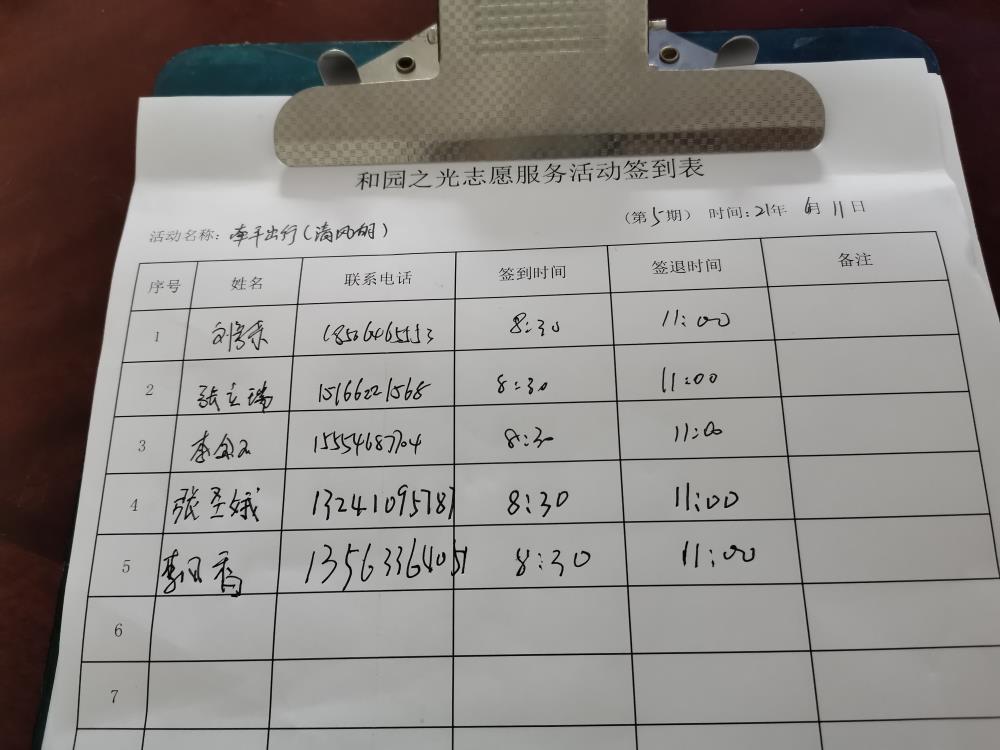 和园之光志愿服务活动签到表
(第5期) 时间:21年 6月 11日
活动名称: 牵手出行(清风湖)
序号 姓名 联系电话 签到时间 签退时间 备注
1 18506465553 8:30 11:00
2 张立瑞 15166221568 8:30 11:00
3 15554687704 8:30 11:00
4 张圣娥 13241095787 8:30 11:00
5 13563364051 8:30 11:00
6
7